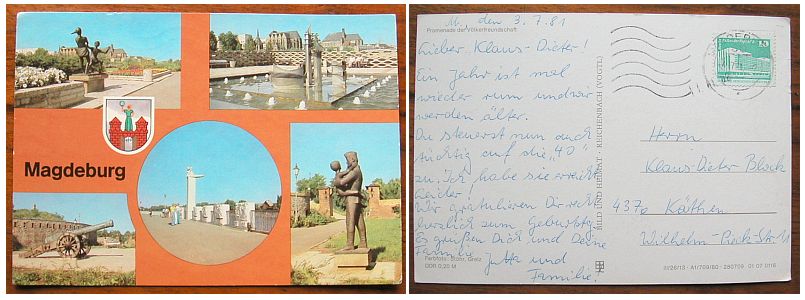 Magdeburg
M., den 3.7.81
Promenade der Völkerfreundschaft
Lieber Klaus-Dieter!
Ein Jahr ist mal
wieder rum und wir
werden älter.
Du steuerst nun auch
tüchtig auf die "40"
zu. Ich habe sie erreicht
leider!
Wir gratulieren Dir recht
herzlich zum Geburtstag.
Es grüßen Dich und Deine
Familie Jutta und
Familie!
Farbfoto: Stöhr, Greiz
DDR 0,20 M
BILD UND HEIMAT · REICHENBACH (VOGTL)
10
Herrn
Klaus-Dieter Block
4370 Köthen
Wilhelm-Pieck-Str.
III/26/13 · A1/709/80 · 280709 01 07 0116